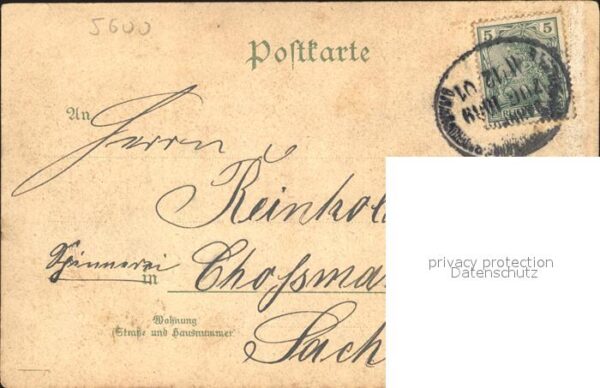 5600
Postkarte
5
An
Herrn
Reinhol
Spinnerei
in
Wohnung
(Straße und Hausnummer
Sach
privacy protection
Datenschutz